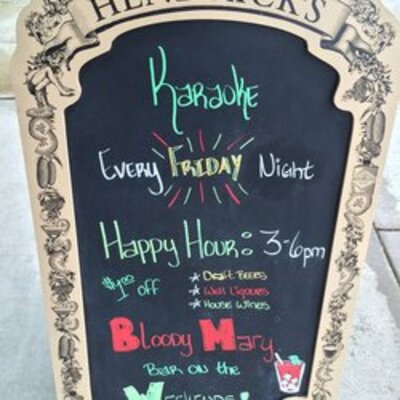 HENDRICK'S
KARAOKE
EVERY FRIDAY Night
HAPPY HOUR: 3-6pm
$1.00 OFF
* Draft Beers
* Well Liqours
* House Wines
BLOODY MARY
BAR ON THE
WEEKENDS!